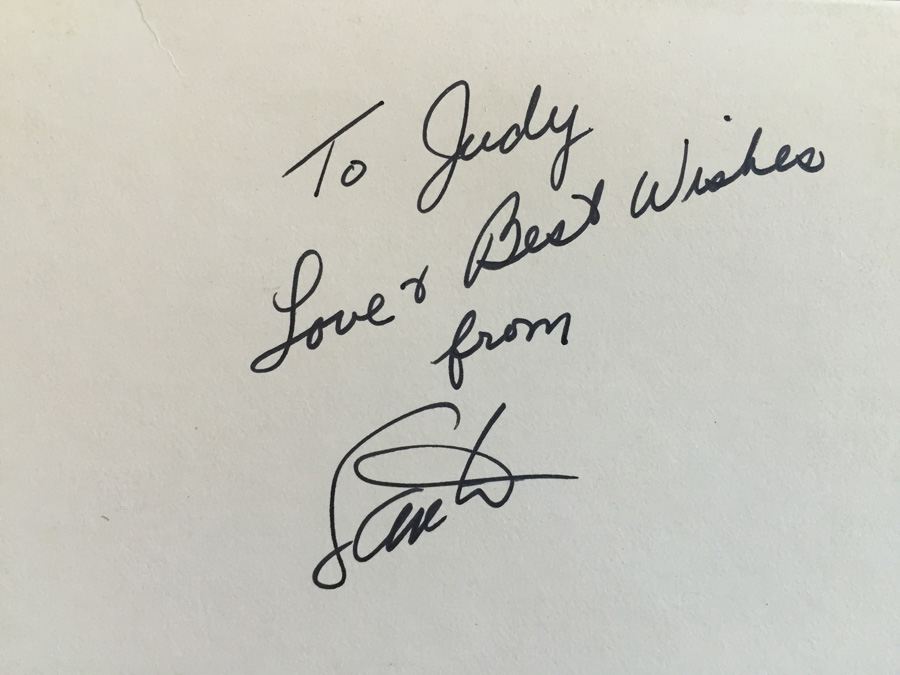 To Judy
Love & Best Wishes
from